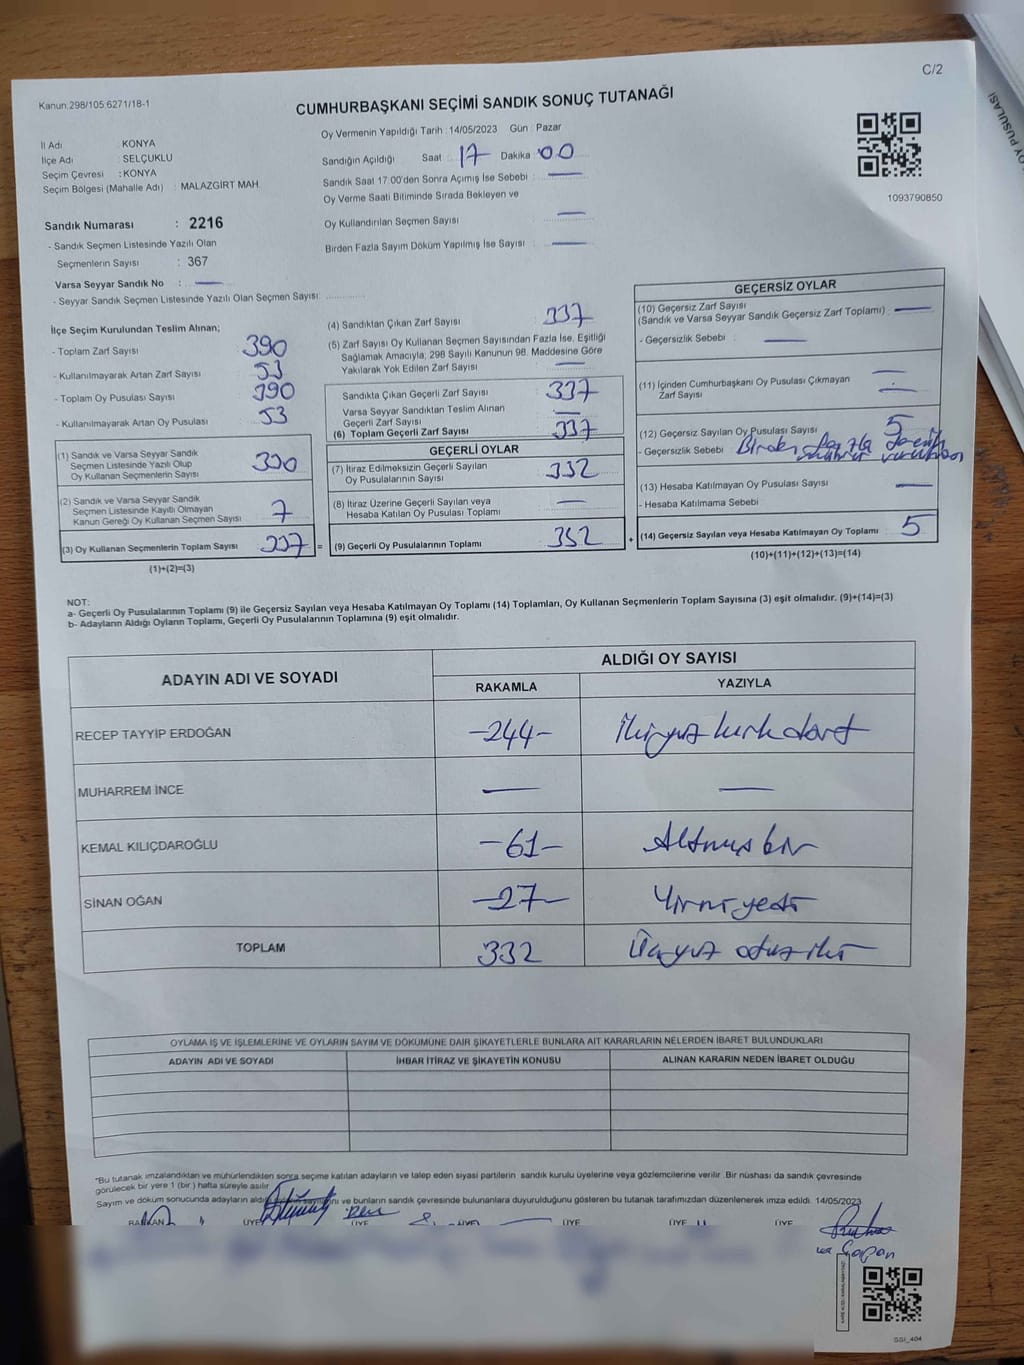 C/2
Kanun:298/105,6271/18-1
CUMHURBAŞKANI SEÇİMİ SANDIK SONUÇ TUTANAĞI
Oy Vermenin Yapıldığı Tarih :14/05/2023 Gün : Pazar
İl Adı : KONYA
İlçe Adı : SELÇUKLU
Seçim Çevresi : KONYA
Seçim Bölgesi (Mahalle Adı) : MALAZGİRT MAH
Sandığın Açıldığı Saat 17 Dakika 00
Sandık Saat 17:00'den Sonra Açımış İse Sebebi : —
Oy Verme Saati Bitiminde Sırada Bekleyen ve
Oy Kullandırılan Seçmen Sayısı —
Birden Fazla Sayım Döküm Yapılmış İse Sayısı : —
1093790850
Sandık Numarası : 2216
- Sandık Seçmen Listesinde Yazılı Olan
Seçmenlerin Sayısı : 367
Varsa Seyyar Sandık No : —
- Seyyar Sandık Seçmen Listesinde Yazılı Olan Seçmen Sayısı:
İlçe Seçim Kurulundan Teslim Alınan;
- Toplam Zarf Sayısı 390
- Kullanılmayarak Artan Zarf Sayısı 53
- Toplam Oy Pusulası Sayısı 390
- Kullanılmayarak Artan Oy Pusulası 53
(1) Sandık ve Varsa Seyyar Sandık
Seçmen Listesinde Yazılı Olup
Oy Kullanan Seçmenlerin Sayısı 330
(2) Sandık ve Varsa Seyyar Sandık
Seçmen Listesinde Kayıtlı Olmayan
Kanun Gereği Oy Kullanan Seçmen Sayısı 7
(3) Oy Kullanan Seçmenlerin Toplam Sayısı 337 =
(1)+(2)=(3)
(4) Sandıktan Çıkan Zarf Sayısı 337
(5) Zarf Sayısı Oy Kullanan Seçmen Sayısından Fazla İse, Eşitliği
Sağlamak Amacıyla; 298 Sayılı Kanunun 98. Maddesine Göre
Yakılarak Yok Edilen Zarf Sayısı —
Sandıkta Çıkan Geçerli Zarf Sayısı 337
Varsa Seyyar Sandıktan Teslim Alınan
Geçerli Zarf Sayısı —
(6) Toplam Geçerli Zarf Sayısı 337
GEÇERLİ OYLAR
(7) İtiraz Edilmeksizin Geçerli Sayılan
Oy Pusulalarının Sayısı 332
(8) İtiraz Üzerine Geçerli Sayılan veya
Hesaba Katılan Oy Pusulası Toplamı —
(9) Geçerli Oy Pusulalarının Toplamı 332 +
GEÇERSİZ OYLAR
(10) Geçersiz Zarf Sayısı
(Sandık ve Varsa Seyyar Sandık Geçersiz Zarf Toplamı) : —
- Geçersizlik Sebebi : —
(11) İçinden Cumhurbaşkanı Oy Pusulası Çıkmayan —
Zarf Sayısı —
(12) Geçersiz Sayılan Oy Pusulası Sayısı 5
- Geçersizlik Sebebi Birden fazla
(13) Hesaba Katılmayan Oy Pusulası Sayısı —
- Hesaba Katılmama Sebebi
(14) Geçersiz Sayılan veya Hesaba Katılmayan Oy Toplamı 5
(10)+(11)+(12)+(13)=(14)
NOT:
a- Geçerli Oy Pusulalarının Toplamı (9) ile Geçersiz Sayılan veya Hesaba Katılmayan Oy Toplamı (14) Toplamları, Oy Kullanan Seçmenlerin Toplam Sayısına (3) eşit olmalıdır. (9)+(14)=(3)
b- Adayların Aldığı Oyların Toplamı, Geçerli Oy Pusulalarının Toplamına (9) eşit olmalıdır.
ADAYIN ADI VE SOYADI ALDIĞI OY SAYISI
RAKAMLA YAZIYLA
RECEP TAYYİP ERDOĞAN -244- İkiyüz kırk dört
MUHARREM İNCE — —
KEMAL KILIÇDAROĞLU -61- Altmış bir
SİNAN OĞAN -27- Yirmi yedi
TOPLAM 332 Üçyüz otuz iki
OYLAMA İŞ VE İŞLEMLERİNE VE OYLARIN SAYIM VE DÖKÜMÜNE DAİR ŞİKAYETLERLE BUNLARA AİT KARARLARIN NELERDEN İBARET BULUNDUKLARI
ADAYIN ADI VE SOYADI İHBAR İTİRAZ VE ŞİKAYETİN KONUSU ALINAN KARARIN NEDEN İBARET OLDUĞU
*Bu tutanak imzalandıktan ve mühürlendikten sonra seçime katılan adayların ve talep eden siyasi partilerin sandık kurulu üyelerine veya gözlemcilerine verilir. Bir nüshası da sandık çevresinde
görülecek bir yere 1 (bir) hafta süreyle asılır.
Sayım ve döküm sonucunda adayların ve bunların sandık çevresinde bulunanlara duyurulduğunu gösteren bu tutanak tarafımızdan düzenlenerek imza edildi. 14/05/2023
BAŞKAN ÜYE ÜYE ÜYE ÜYE ÜYE ÜYE
SSI_404
OY PUSULASI